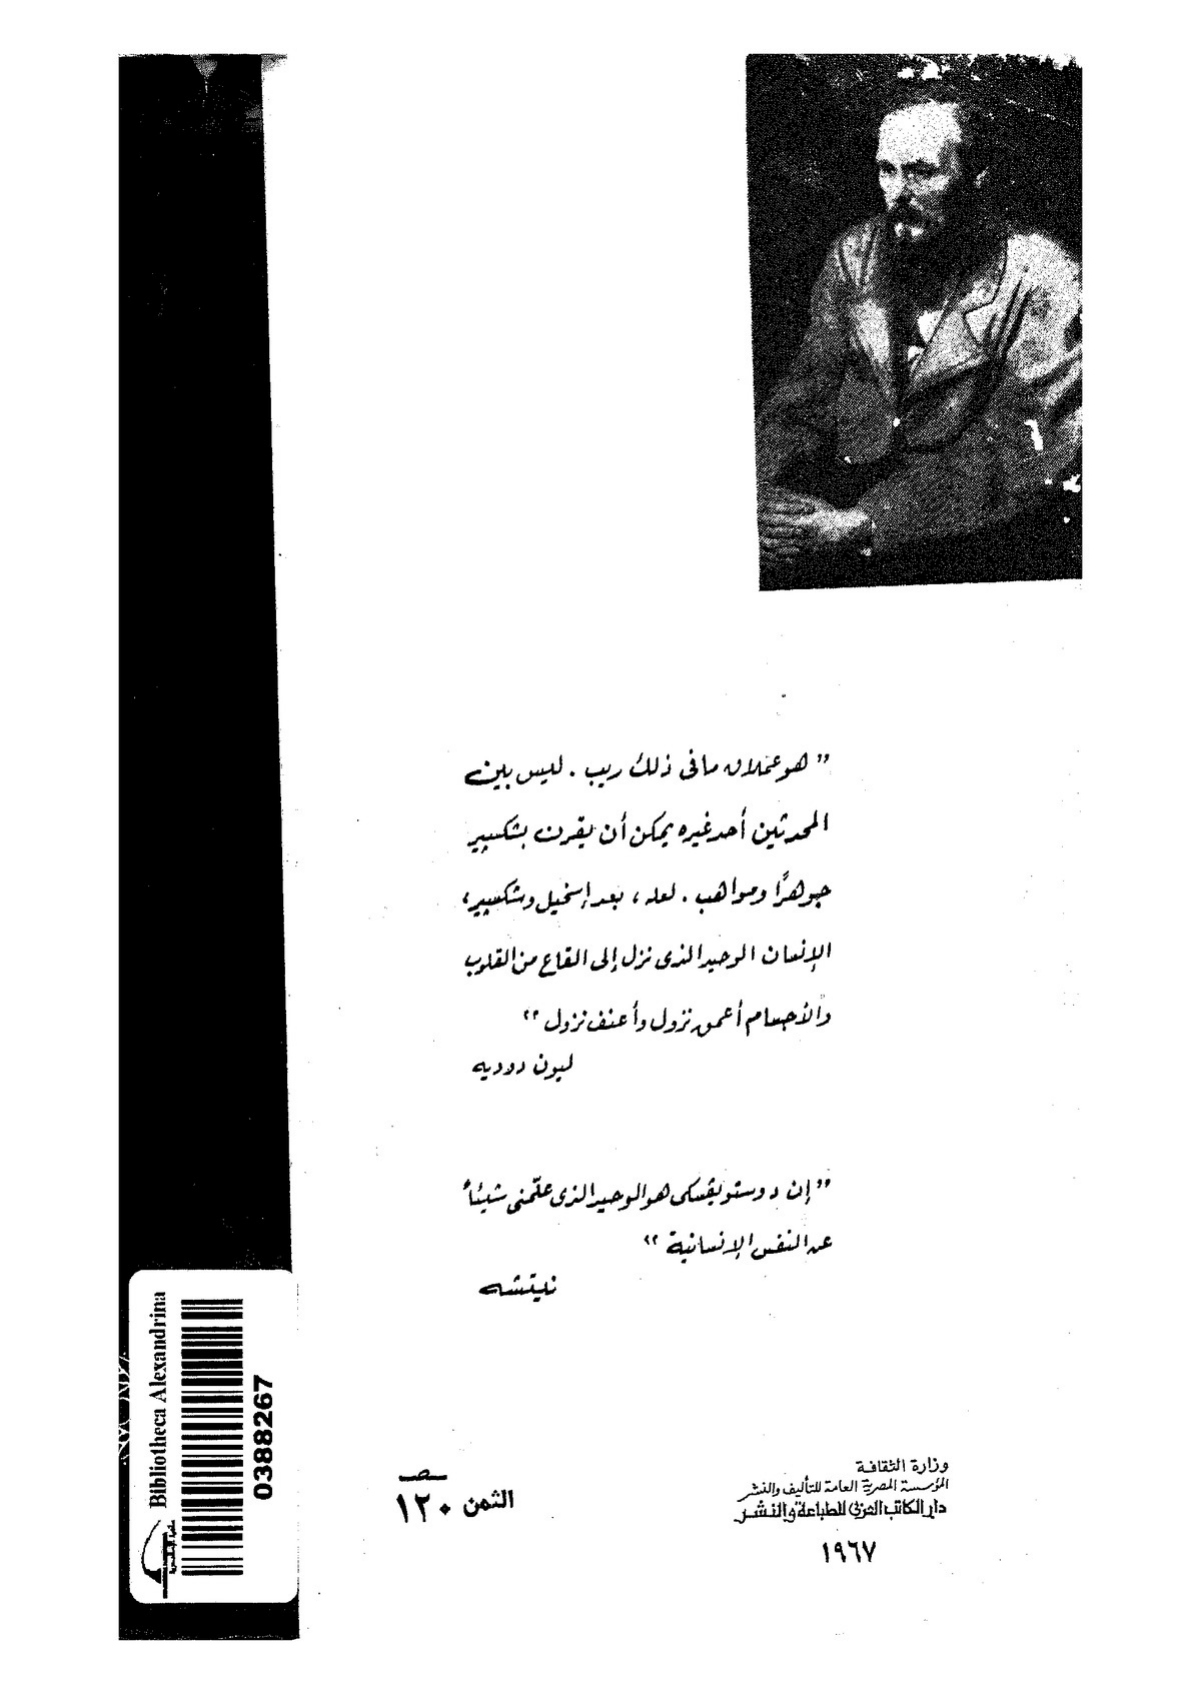 ” هو عملاق مافى ذلك ريب . ليس بين
المحدثين أحد غيره يمكن أن يقرن بشكسبير
جوهرًا ومواهب . لعله ، بعد إسخيل وشكسبير،
الإنسان الوحيد الذى نزل إلى القاع من القلوب
والأجسام أعمق نزول وأعنف نزول “
ليون دوديه
” إن دوستويفسكى هو الوحيد الذى علّمنى شيئاً
عن النفس الإنسانية “
نيتشه
وزارة الثقافة
المؤسسة المصرية العامة للتأليف والنشر
دار الكاتب العربى للطباعة والنشر
١٩٦٧
الثمن ١٢٠
Bibliotheca Alexandrina
0388267